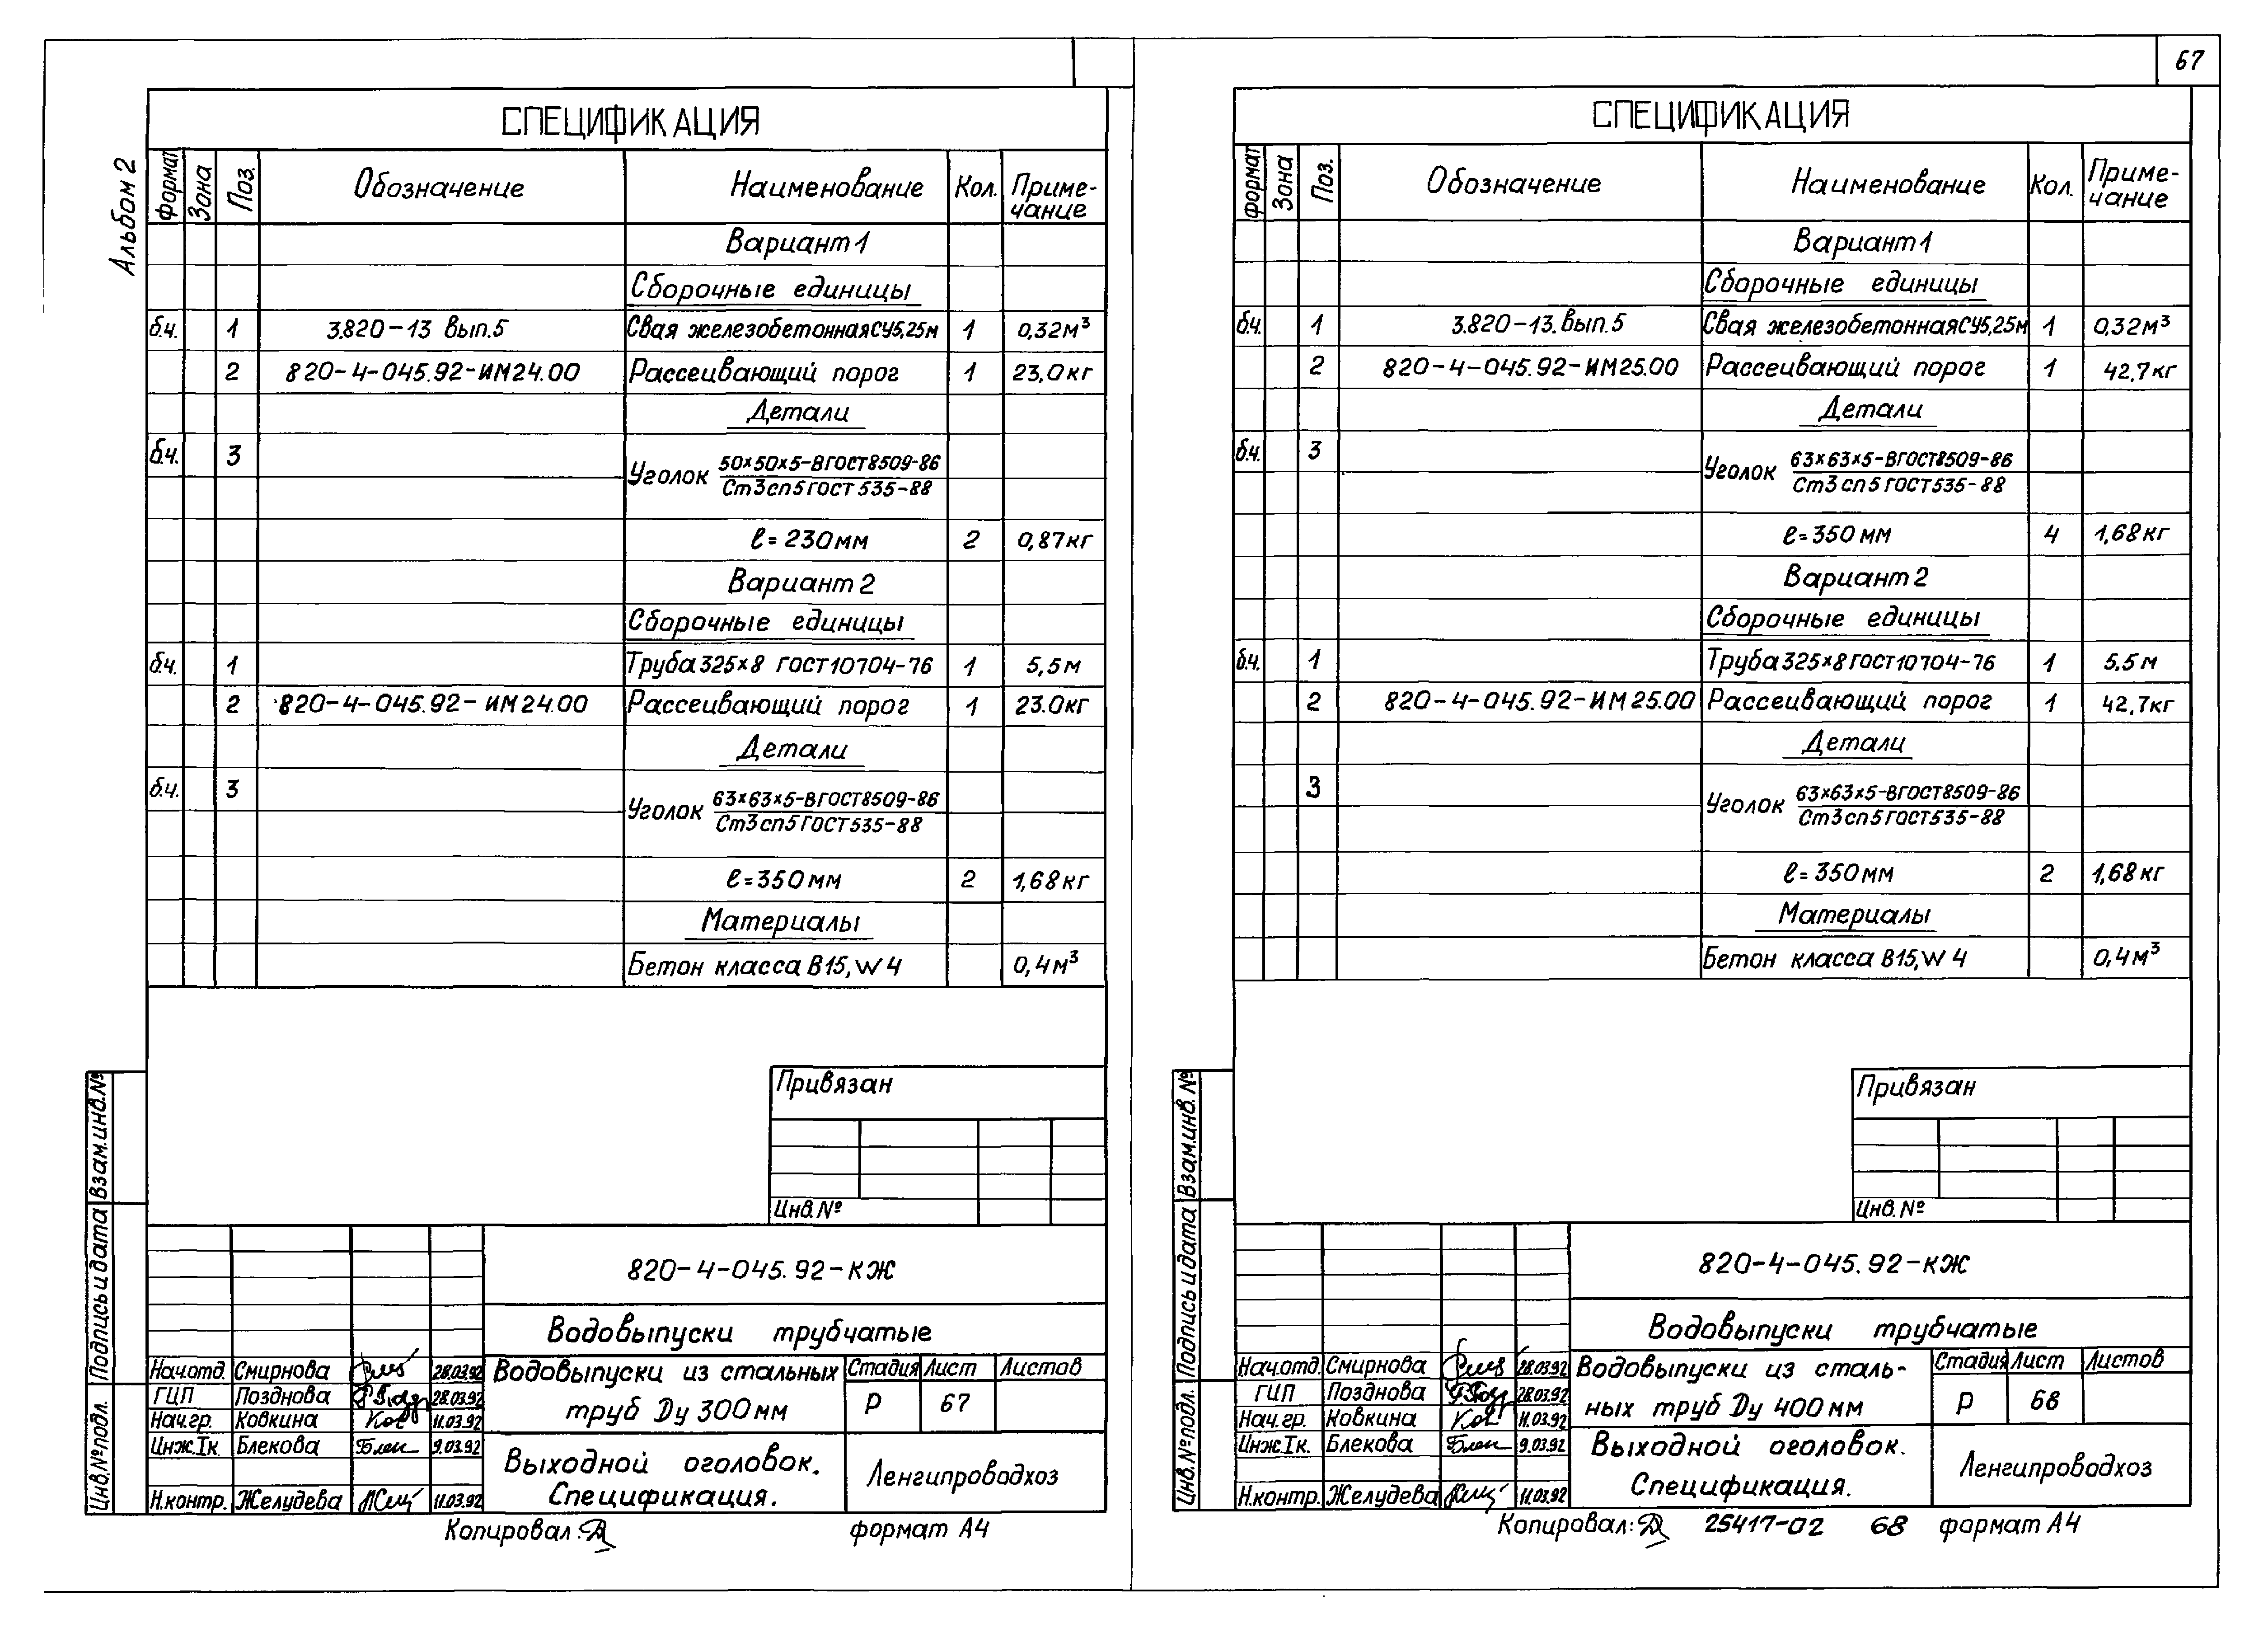 67
Альбом 2
СПЕЦИФИКАЦИЯ
формат Зона Поз. Обозначение Наименование Кол. Приме-
чание
Вариант 1
Сборочные единицы
б.ч. 1 3.820-13 Вып.5 Свая железобетонная СУ5,25м 1 0,32м³
2 820-4-045.92-ИМ24.00 Рассеивающий порог 1 23,0кг
Детали
б.ч. 3 Уголок 50×50×5-В ГОСТ8509-86
Ст3сп5 ГОСТ 535-88
ℓ=230мм 2 0,87кг
Вариант 2
Сборочные единицы
б.ч. 1 Труба 325×8 ГОСТ10704-76 1 5,5м
2 820-4-045.92-ИМ24.00 Рассеивающий порог 1 23.0кг
Детали
б.ч. 3 Уголок 63×63×5-В ГОСТ8509-86
Ст3сп5 ГОСТ535-88
ℓ=350мм 2 1,68кг
Материалы
Бетон класса В15, W4 0,4м³
Привязан
Инв.№
Взам.инв.№
Подпись и дата
Инв.№подл.
820-4-045.92-КЖ
Водовыпуски трубчатые
Нач.отд. Смирнова 28.03.92
ГИП Позднова 28.03.92
Нач.гр. Ковкина 11.03.92
Инж.Iк. Блекова 9.03.92
Н.контр. Желудева 11.03.92
Водовыпуски из стальных
труб Dу 300мм
Стадия Лист Листов
Р 67
Выходной оголовок.
Спецификация.
Ленгипроводхоз
Копировал: формат А4
СПЕЦИФИКАЦИЯ
формат Зона Поз. Обозначение Наименование Кол. Приме-
чание
Вариант 1
Сборочные единицы
б.ч. 1 3.820-13. Вып.5 Свая железобетонная СУ5,25м 1 0,32м³
2 820-4-045.92-ИМ25.00 Рассеивающий порог 1 42,7кг
Детали
б.ч. 3 Уголок 63×63×5-В ГОСТ8509-86
Ст3сп5 ГОСТ535-88
ℓ=350мм 4 1,68кг
Вариант 2
Сборочные единицы
б.ч. 1 Труба 325×8 ГОСТ10704-76 1 5,5м
2 820-4-045.92-ИМ25.00 Рассеивающий порог 1 42,7кг
Детали
3 Уголок 63×63×5-В ГОСТ8509-86
Ст3сп5 ГОСТ535-88
ℓ=350мм 2 1,68кг
Материалы
Бетон класса В15, W4 0,4м³
Привязан
Инв.№
Взам.инв.№
Подпись и дата
Инв.№подл.
820-4-045.92-КЖ
Водовыпуски трубчатые
Нач.отд. Смирнова 28.03.92
ГИП Позднова 28.03.92
Нач.гр. Ковкина 11.03.92
Инж.Iк. Блекова 9.03.92
Н.контр. Желудева 11.03.92
Водовыпуски из сталь-
ных труб Dу 400мм
Стадия Лист Листов
Р 68
Выходной оголовок.
Спецификация.
Ленгипроводхоз
Копировал: 25417-02 68 формат А4